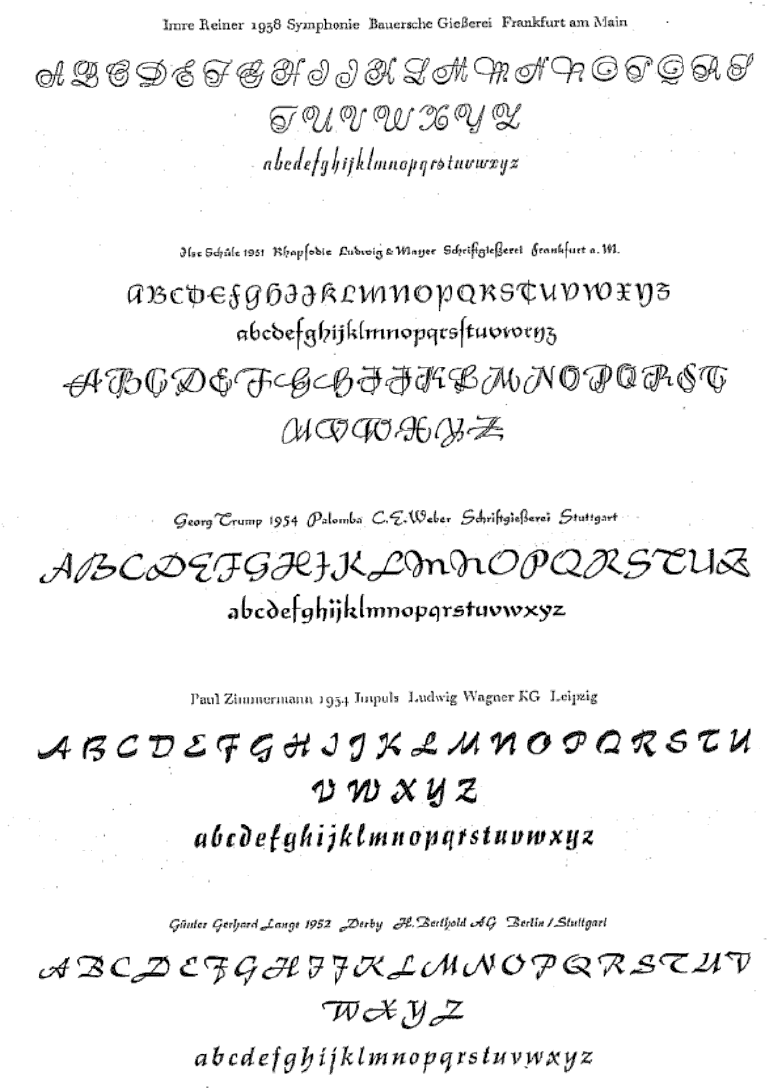 Imre Reiner 1938 Symphonie Bauersche Gießerei Frankfurt am Main
A B C D E F G H I J K L M M N N O P Q R S
T U V W X Y Z
abcdefghijklmnopqrstuvwxyz
Ilse Schüle 1951 Rhapsodie Ludwig & Mayer Schriftgießerei Frankfurt a. M.
ABCDEFGHIJKLMNOPQRSTUVWXYZ
abcdefghijklmnopqrsſtuvwxyz
ABCDEFGHIJKLMNOPQRST
UVWXYZ
Georg Trump 1954 Palomba C.E.Weber Schriftgießerei Stuttgart
ABCDEFGHIJKLMNOPQRSTUZ
abcdefghijklmnopqrstuvwxyz
Paul Zimmermann 1954 Impuls Ludwig Wagner KG Leipzig
A B C D E F G H I J K L M N O P Q R S T U
V W X Y Z
abcdefghijklmnopqrstuvwxyz
Günter Gerhard Lange 1952 Derby H. Berthold AG Berlin / Stuttgart
A B C D E F G H I J K L M N O P Q R S T U V
W X Y Z
abcdefghijklmnopqrstuvwxyz